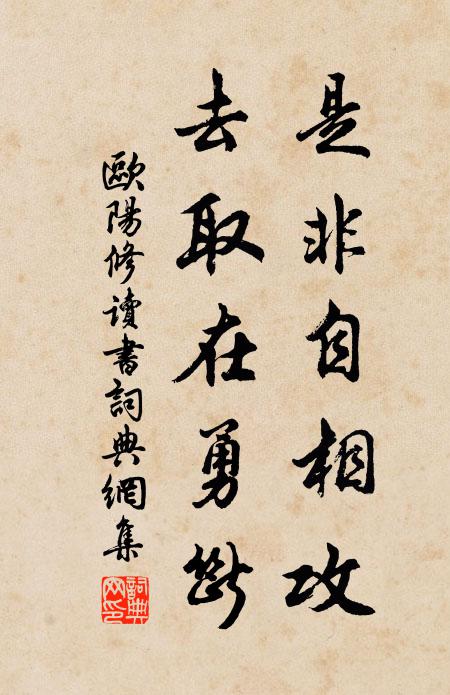 是非自相攻
去取在勇斷
歐陽修讀書詞典網集
詞典網印